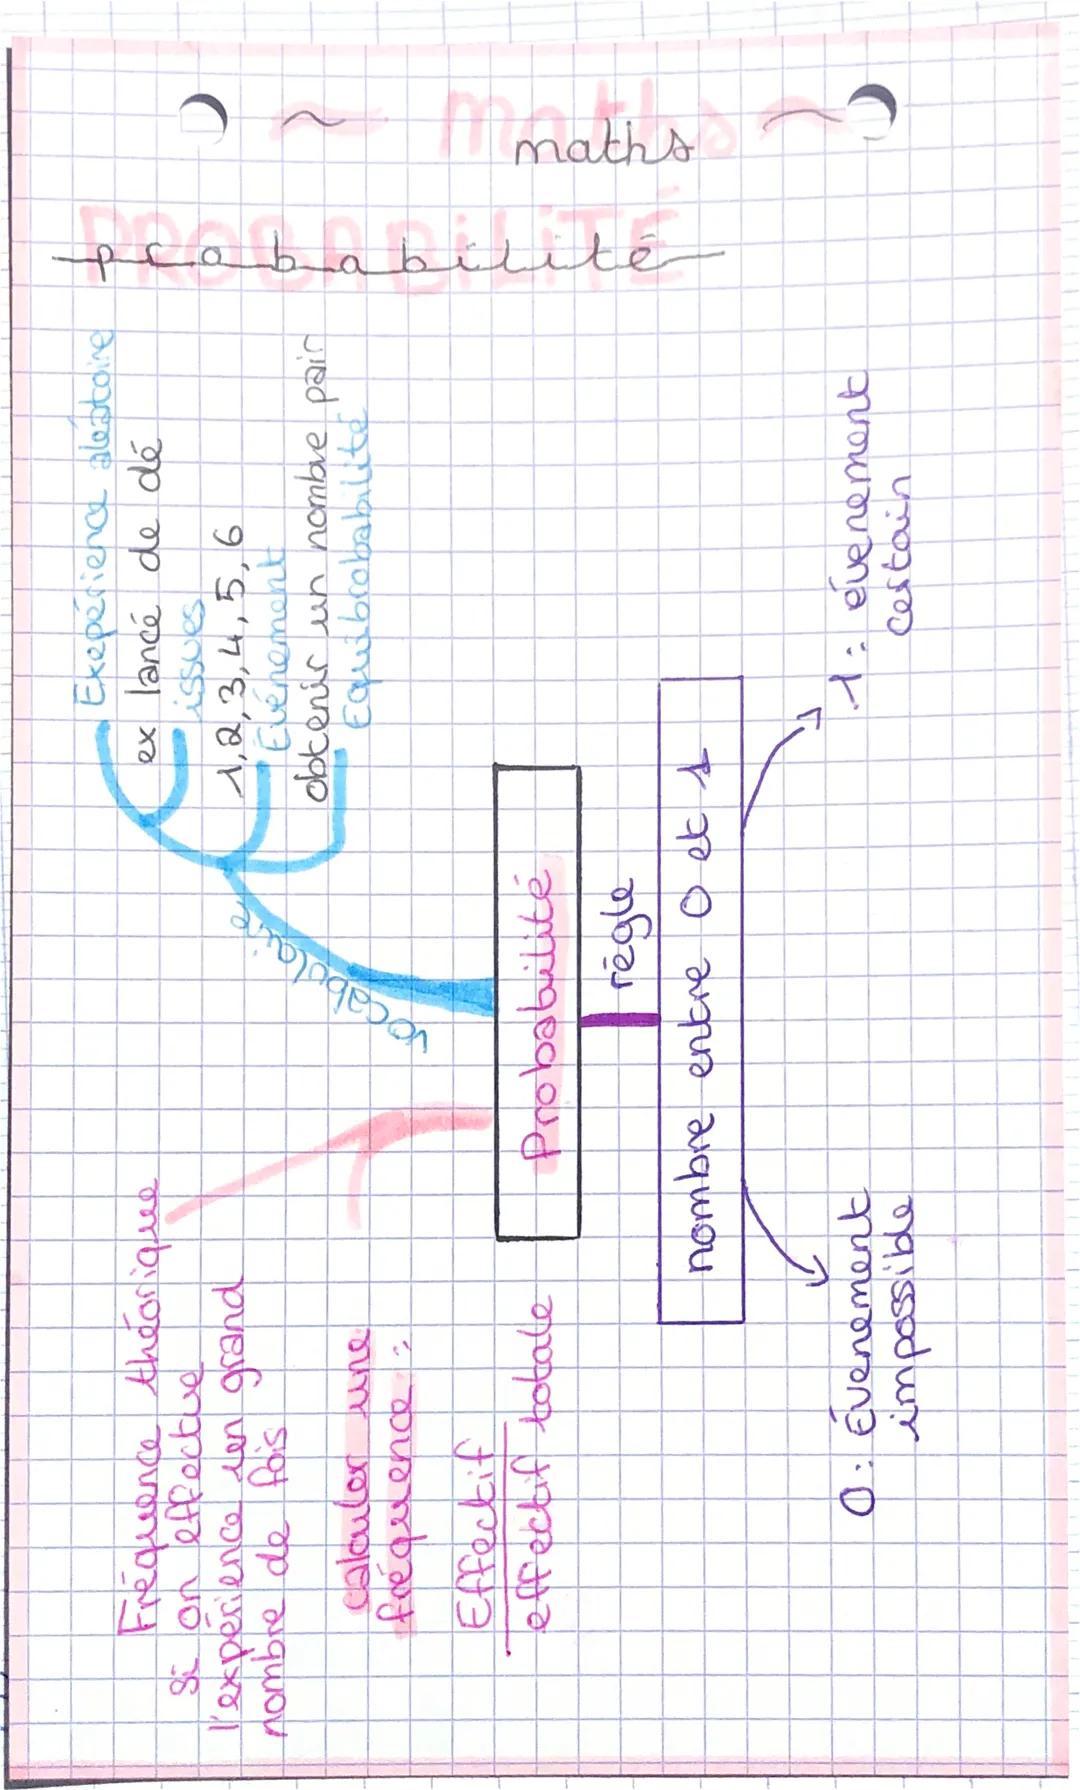 maths
maths
PROBABILITÉ
probabilité
Exepérience aléatoire
ex lancé de dé
issues
1,2,3,4,5,6
Evénement
obtenir un nombre pair
Equibrobabilité
vocabulaire
Probabilité
règle
nombre entre 0 et 1
1 : évenement
certain
0 : Évenement
impossible
Fréquence théorique
Si on effectue
l'expérience un grand
nombre de fois
calculer une
fréquence :
Effectif
effectif totale